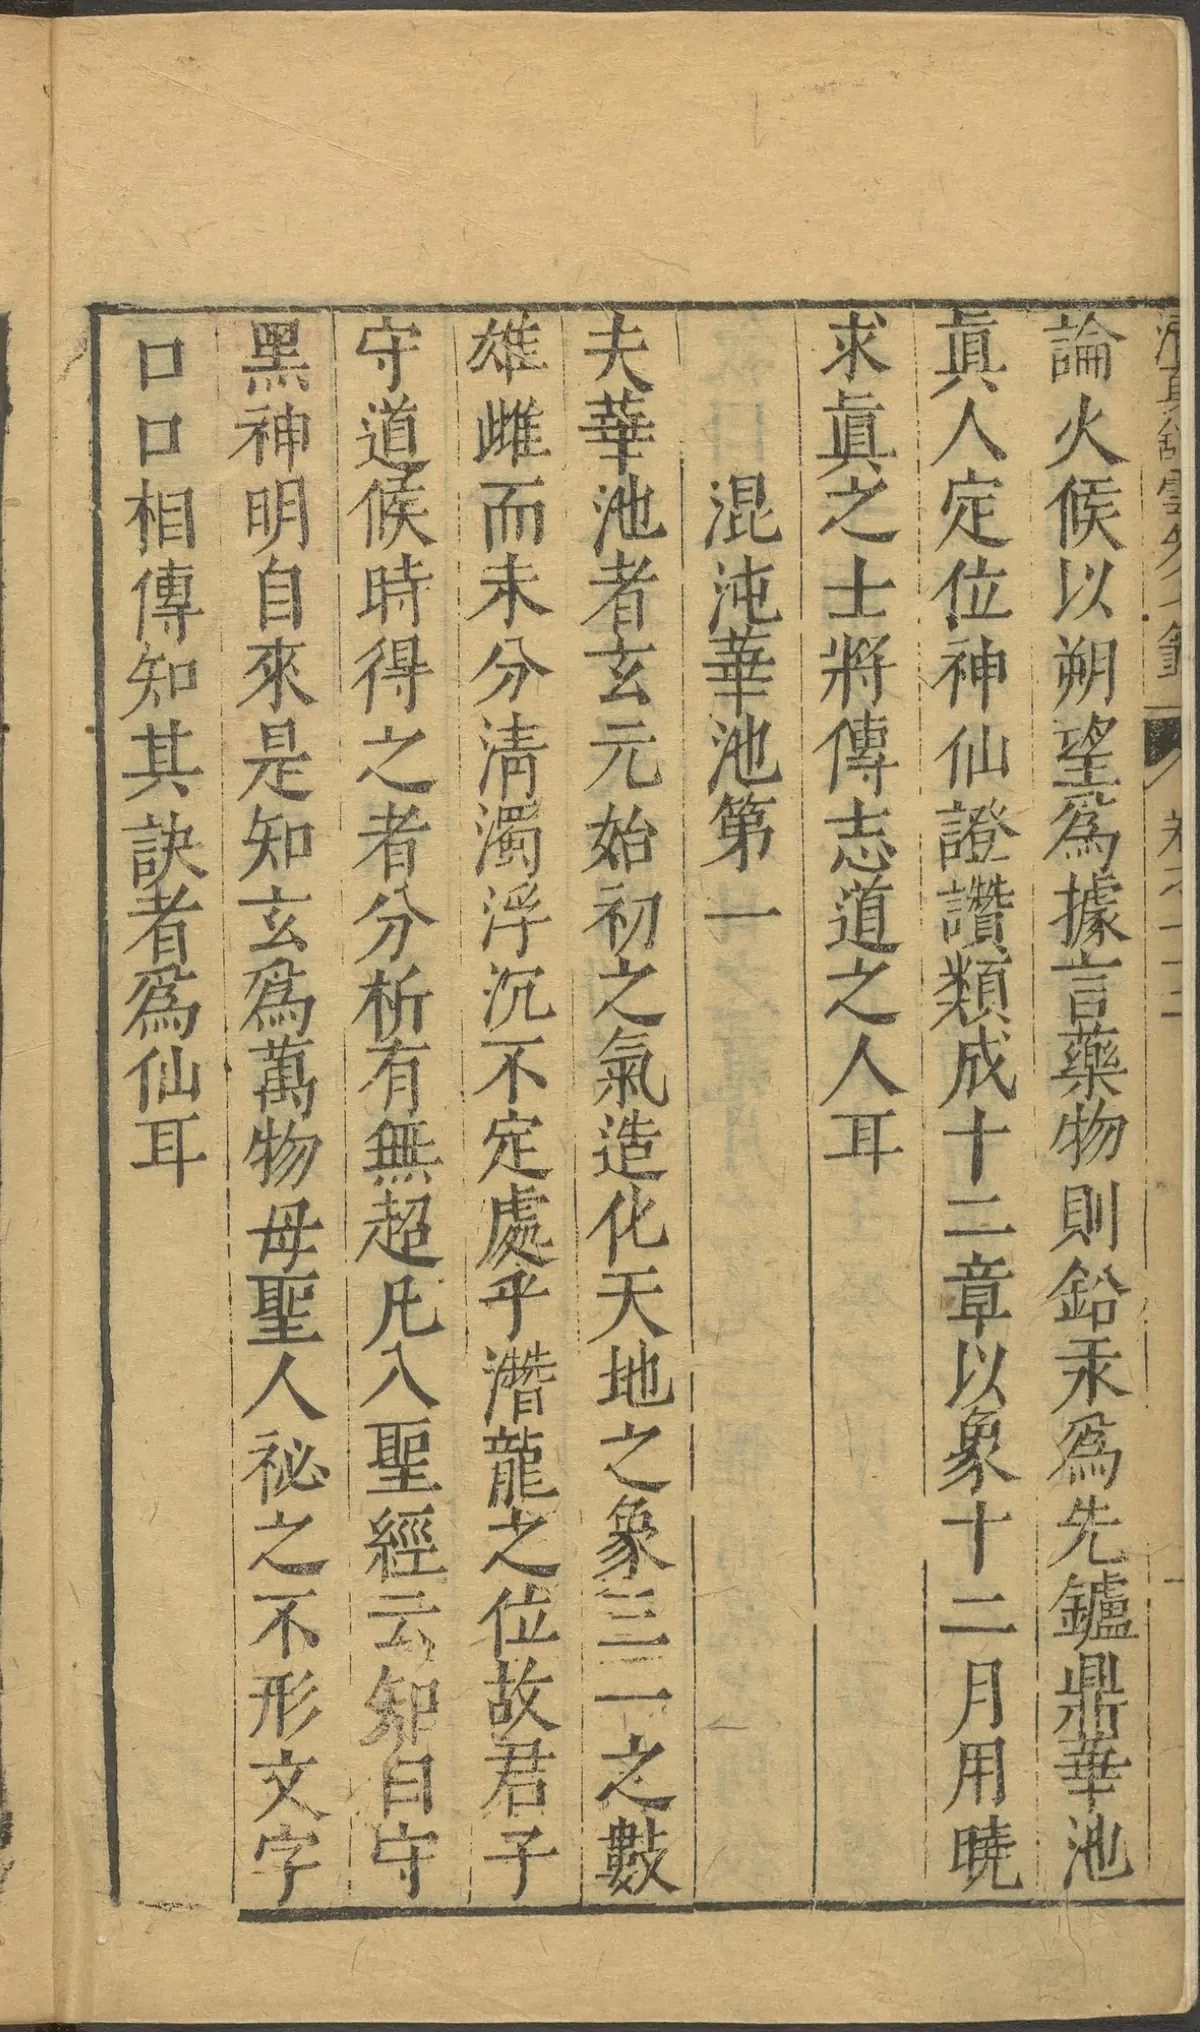 論火候以朔望爲據言藥物則鉛汞爲先鑪鼎華池
眞人定位神仙證讚類成十二章以象十二月用曉
求眞之士將傳志道之人耳
混沌華池第一
夫華池者玄元始初之氣造化天地之象三一之數
雄雌而未分淸濁浮沉不定處乎潛龍之位故君子
守道候時得之者分析有無超凡入聖經云知白守
黑神明自來是知玄爲萬物母聖人祕之不形文字
口口相傳知其訣者爲仙耳